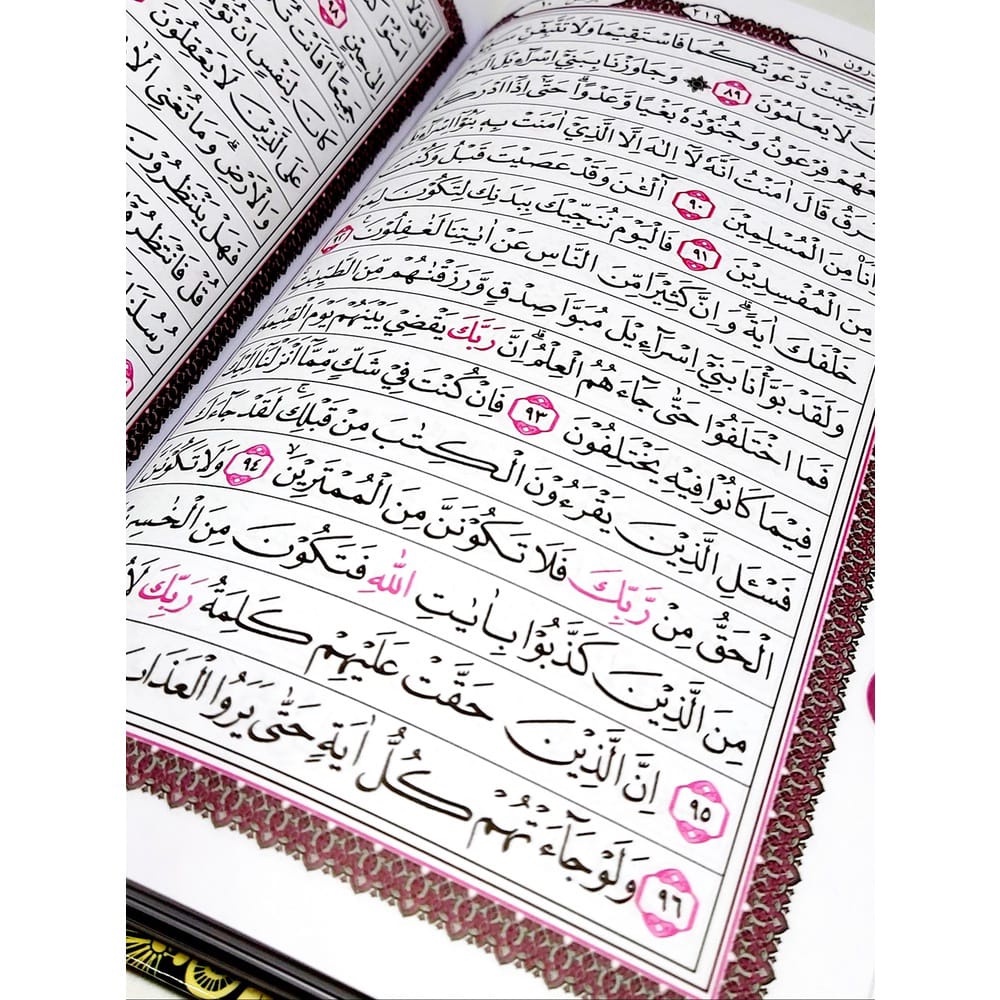 ٢١٩
١١
اُجِيْبَتْ دَّعْوَتُكُمَا فَاسْتَقِيْمَا وَلَا تَتَّبِعٰٓنِّ
لَا يَعْلَمُوْنَ ٨٩ وَجَاوَزْنَا بِبَنِيْٓ اِسْرَاۤءِيْلَ
فِرْعَوْنُ وَجُنُوْدُهٗ بَغْيًا وَّعَدْوًاۗ حَتّٰىٓ اِذَآ
قَالَ اٰمَنْتُ اَنَّهٗ لَآ اِلٰهَ اِلَّا الَّذِيْٓ اٰمَنَتْ بِهٖ بَنُوْٓا
اَنَا۠ مِنَ الْمُسْلِمِيْنَ ٩٠ اٰۤلْـٰٔنَ وَقَدْ عَصَيْتَ قَبْلُ
مِنَ الْمُفْسِدِيْنَ ٩١ فَالْيَوْمَ نُنَجِّيْكَ بِبَدَنِكَ لِتَكُوْنَ
خَلْفَكَ اٰيَةًۗ وَاِنَّ كَثِيْرًا مِّنَ النَّاسِ عَنْ اٰيٰتِنَا لَغٰفِلُوْنَ ٩٢
وَلَقَدْ بَوَّأْنَا بَنِيْٓ اِسْرَاۤءِيْلَ مُبَوَّاَ صِدْقٍ وَّرَزَقْنٰهُمْ مِّنَ
فَمَا اخْتَلَفُوْا حَتّٰى جَاۤءَهُمُ الْعِلْمُۗ اِنَّ رَبَّكَ يَقْضِيْ بَيْنَهُمْ يَوْمَ
فِيْمَا كَانُوْا فِيْهِ يَخْتَلِفُوْنَ ٩٣ فَاِنْ كُنْتَ فِيْ شَكٍّ مِّمَّآ اَنْزَلْنَآ
فَسْـَٔلِ الَّذِيْنَ يَقْرَءُوْنَ الْكِتٰبَ مِنْ قَبْلِكَ لَقَدْ جَاۤءَكَ
الْحَقُّ مِنْ رَّبِّكَ فَلَا تَكُوْنَنَّ مِنَ الْمُمْتَرِيْنَۙ ٩٤ وَلَا تَكُوْنَنَّ
مِنَ الَّذِيْنَ كَذَّبُوْا بِاٰيٰتِ اللّٰهِ فَتَكُوْنَ مِنَ
٩٥ اِنَّ الَّذِيْنَ حَقَّتْ عَلَيْهِمْ كَلِمَتُ رَبِّكَ
٩٦ وَلَوْ جَاۤءَتْهُمْ كُلُّ اٰيَةٍ حَتّٰى يَرَوُا
٩٨
اِلٰى حِيْنٍ
جَمِيْعًاۗ اَفَاَنْتَ
كَانَ لِنَفْسٍ اَنْ
عَلَى الَّذِيْنَ لَا يَعْقِلُوْنَ
وَالْاَرْضِۗ وَمَا تُغْنِى
فَهَلْ يَنْتَظِرُوْنَ
قُلْ فَانْتَظِرُوْٓا
رُسُلَنَا